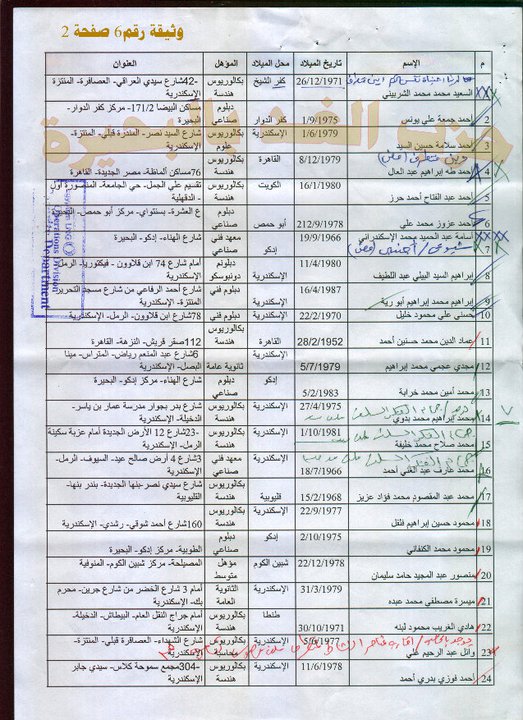 وثيقة رقم6 صفحة 2
م الإسم تاريخ الميلاد محل الميلاد المؤهل العنوان
1 السعيد محمد محمد الشربيني 26/12/1971 كفر الشيخ بكالوريوس هندسة 42-شارع سيدي العراقي- العصافرة- المنتزة الإسكندرية
2 أحمد جمعة علي يونس 1/9/1975 كفر الدوار دبلوم صناعي مساكن البيضا 171/2- مركز كفر الدوار- البحيرة
3 أحمد سلامة حسين السيد 1/6/1979 الإسكندرية بكالوريوس علوم شارع السيد نصر- المندرة قبلي- المنتزة- الإسكندرية
4 أحمد طه إبراهيم عبد العال 8/12/1979 القاهرة بكالوريوس هندسة 76مساكن ألماظة- مصر الجديدة- القاهرة
5 أحمد عبد الفتاح أحمد حرز 16/1/1980 الكويت بكالوريوس هندسة تقسيم علي الجمل- حي الجامعة- المنصورة أول - الدقهلية
6 أحمد عزوز محمد علي 212/9/1978 أبو حمص دبلوم صناعي ع العشرة- بسنتواي- مركز أبو حمص- البحيرة
7 أسامة عبد الحميد محمد الإسكندراني 19/9/1966 إدكو معهد فني صناعي شارع الهناء- إدكو- البحيرة
8 إبراهيم السيد البيلي عبد اللطيف 11/4/1980 الإسكندرية دبلوم دونبوسكو أمام شارع 74 ابن قلاوون - فيكتوريا- الرمل- الإسكندرية
9 إبراهيم محمد إبراهيم أبو رية 16/4/1987 الإسكندرية دبلوم فني شارع أحمد الرفاعي من شارع مسجد التحرير المنتزة- الإسكندرية
10 حسني علي محمود خليل 22/2/1970 الإسكندرية دبلوم فني 78شارع ابن قلاوون- الرمل- الإسكندرية
11 عماد الدين محمد حسنين أحمد 28/2/1952 القاهرة بكالوريوس هندسة 112صقر قريش- النزهة- القاهرة
12 مجدي عجمي محمد إبراهيم 5/7/1979 الإسكندرية ثانوية عامة 6شارع عبد المنعم رياض- المتراس- مينا البصل- الإسكندرية
13 محمد أمين محمد خرابة 5/2/1983 إدكو دبلوم صناعي شارع الهناء- مركز إدكو- البحيرة
14 محمد إبراهيم محمد بدوي 27/4/1975 الإسكندرية بكالوريوس هندسة شارع بدر بجوار مدرسة عمار بن ياسر- الدخيلة- الإسكندرية
15 محمد صلاح محمد خليفة 1/10/1981 الإسكندرية بكالوريوس هندسة 23-شارع 12 الأرض الجديدة أمام عزبة سكينة الرمل- الإسكندرية
16 محمد عارف عبد الغني أحمد 18/7/1966 الإسكندرية معهد فني صناعي 3شارع 4 أرض صالح عيد- السيوف- الرمل- الإسكندرية
17 محمد عبد المقصود محمد فؤاد عزيز 15/2/1968 قليوبية بكالوريوس هندسة شارع سيدي نصر-بنها الجديدة- بندر بنها- القليوبية
18 محمود حسين إبراهيم فلفل 22/9/1977 الإسكندرية بكالوريوس هندسة 160شارع أحمد شوقي- رشدي- الإسكندرية
19 محمود محمد الكفافي 2/10/1975 إدكو دبلوم صناعي الطوبية- مركز إدكو- البحيرة
20 منصور عبد المجيد حامد سليمان 22/12/1978 شبين الكوم مؤهل متوسط المصيلحة- مركز شبين الكوم- المنوفية
21 ميسرة مصطفي محمد عبده 31/3/1979 الإسكندرية الثانوية العامة أمام 3 شارع الخضر من شارع جرين- محرم بك- الإسكندرية
22 هادي الغريب محمود لبنه 30/10/1971 طنطا بكالوريوس هندسة أمام جراج النقل العام- البيطاش- الدخيلة- الإسكندرية
23 وائل عبد الرحيم علي 5/6/1977 الإسكندرية بكالوريوس محاسبة شارع الشهداء- العصافرة قبلي- المنتزة- الإسكندرية
24 أحمد فوزي بدري أحمد 11/6/1978 الإسكندرية بكالوريوس هندسة 304-مجمع سموحة كلاس- سيدي جابر الإسكندرية